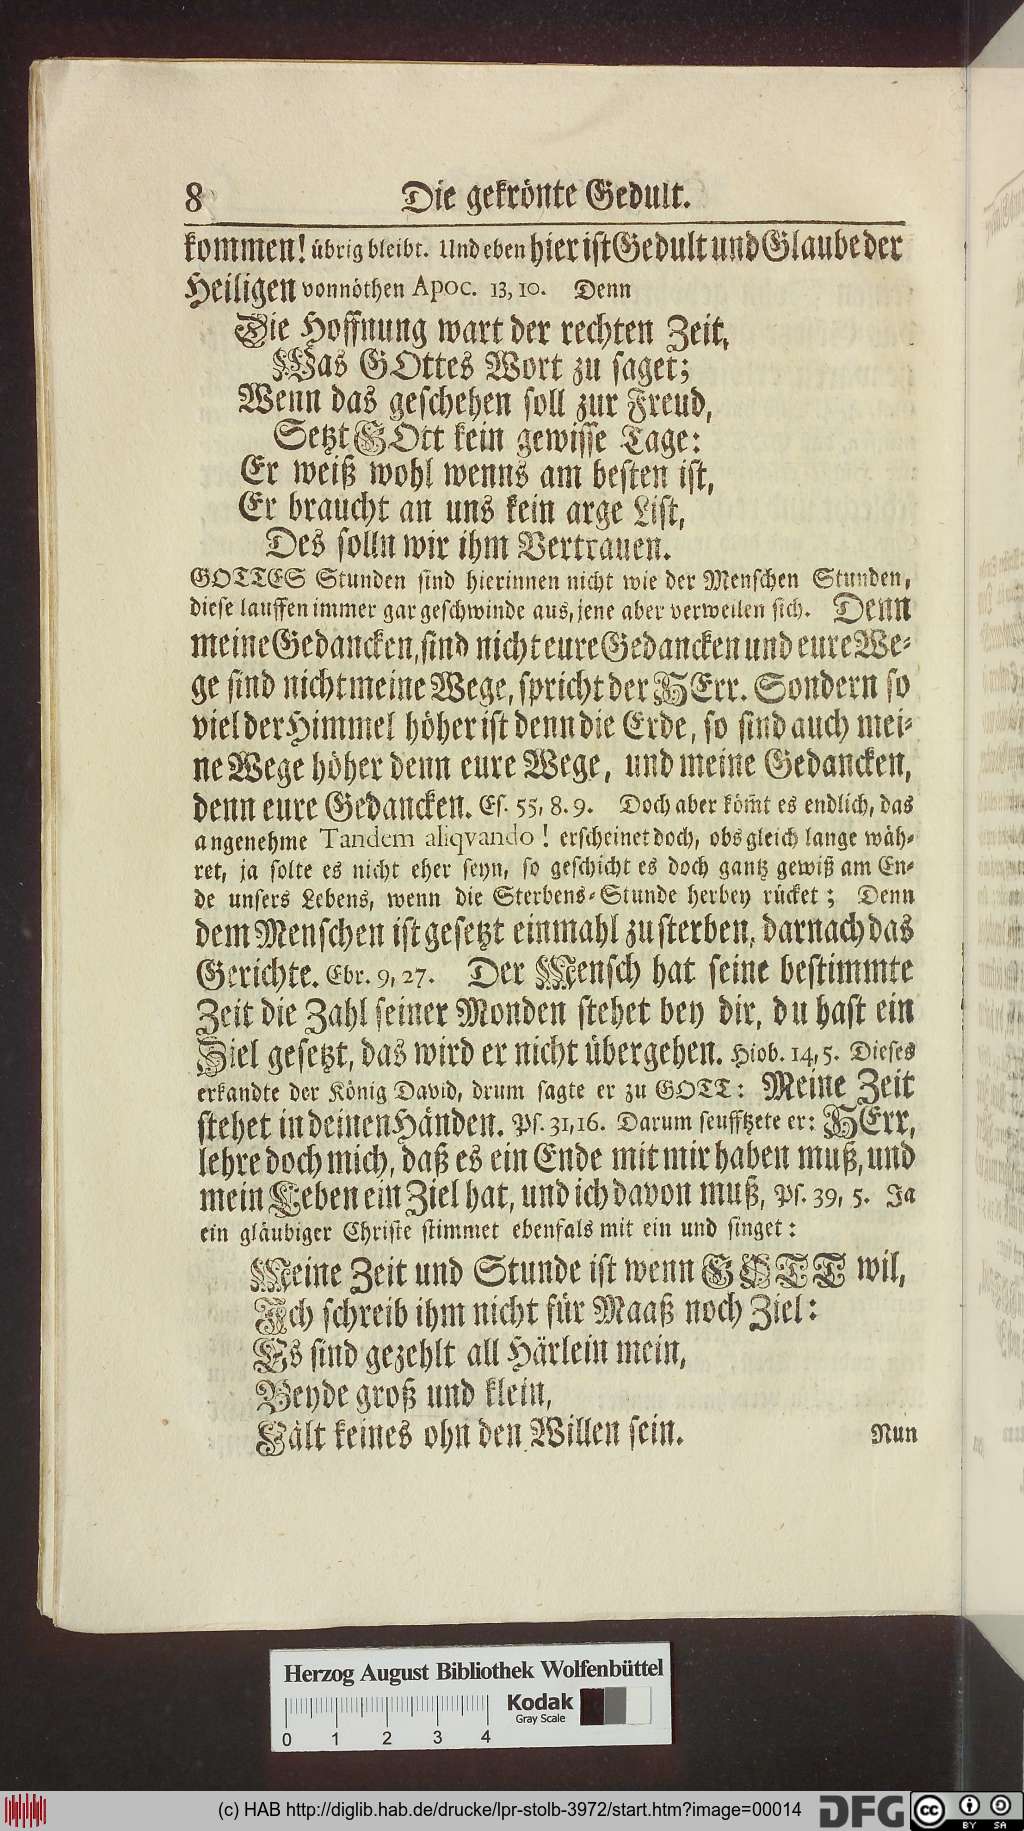 8 Die gekrönte Gedult.
kommen! übrig bleibt. Und eben hier ist Gedult und Glaube der
Heiligen vonnöthen Apoc. 13, 10. Denn
Die Hoffnung wart der rechten Zeit,
Was GOttes Wort zu saget;
Wenn das geschehen soll zur Freud,
Setzt GOtt kein gewisse Tage:
Er weiß wohl wenns am besten ist,
Er braucht an uns kein arge List,
Des solln wir ihm Vertrauen.
GOTTES Stunden sind hierinnen nicht wie der Menschen Stunden,
diese lauffen immer gar geschwinde aus, jene aber verweilen sich. Denn
meine Gedancken, sind nicht eure Gedancken und eure We-
ge sind nicht meine Wege, spricht der HErr. Sondern so
viel der Himmel höher ist denn die Erde, so sind auch mei-
ne Wege höher denn eure Wege, und meine Gedancken,
denn eure Gedancken. Es. 55, 8. 9. Doch aber köm̃t es endlich, das
angenehme Tandem aliqvando! erscheinet doch, obs gleich lange wäh-
ret, ja solte es nicht eher seyn, so geschicht es doch gantz gewiß am En-
de unsers Lebens, wenn die Sterbens-Stunde herbey rücket; Denn
dem Menschen ist gesetzt einmahl zu sterben, darnach das
Gerichte. Ebr. 9, 27. Der Mensch hat seine bestimmte
Zeit die Zahl seiner Monden stehet bey dir, du hast ein
Ziel gesetzt, das wird er nicht übergehen. Hiob. 14, 5. Dieses
erkandte der König David, drum sagte er zu GOTT: Meine Zeit
stehet in deinen Händen. Ps. 31, 16. Darum seufftzete er: HErr,
lehre doch mich, daß es ein Ende mit mir haben muß, und
mein Leben ein Ziel hat, und ich davon muß, Ps. 39, 5. Ja
ein gläubiger Christe stimmet ebenfals mit ein und singet:
Meine Zeit und Stunde ist wenn GOTT wil,
Ich schreib ihm nicht für Maaß noch Ziel:
Es sind gezehlt all Härlein mein,
Beyde groß und klein,
Fält keines ohn den Willen sein.
Nun
Herzog August Bibliothek Wolfenbüttel
Kodak
Gray Scale
0 1 2 3 4
(c) HAB http://diglib.hab.de/drucke/lpr-stolb-3972/start.htm?image=00014
DFG
cc BY SA